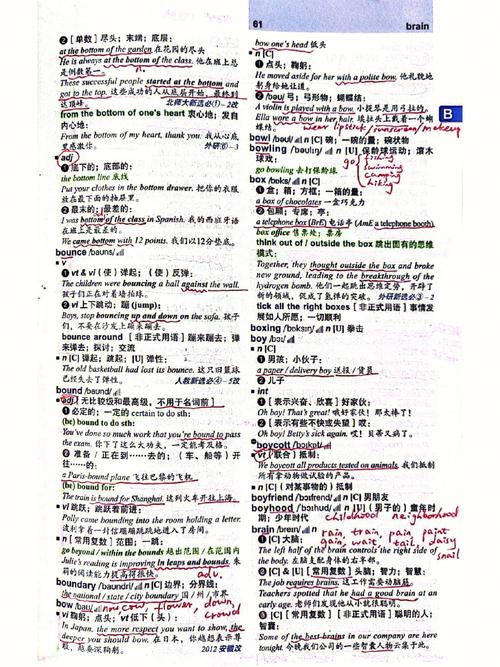 ②[单数] 尽头; 末端; 底层:
at the bottom of the garden 在花园的尽头
He is always at the bottom of the class. 他在班上总
是倒数第一。
These successful people started at the bottom and
got to the top. 这些成功的人从底层开始, 最终到
达顶峰。
北师大新选必①-2改
from the bottom of one's heart 衷心地; 发自
内心地:
From the bottom of my heart, thank you. 我从心底
里感激你。
外研必①-3
adj
①底下的; 底部的:
the bottom line 底线
Put your clothes in the bottom drawer. 把你的衣服
放在最下面的抽屉里。
②最末的; 最差的:
I was bottom of the class in Spanish. 我的西班牙语
在班上是最差的。
We came bottom with 12 points. 我们以12分垫底。
bounce /baʊns/
v
①vt & vi (使) 弹起; (使) 反弹:
The children were bouncing a ball against the wall.
孩子们正在对着墙拍球。
②vi 上下跳动; 蹦 (jump):
Boys, stop bouncing up and down on the sofa. 孩子
们, 不要在沙发上蹦来蹦去。
bounce around [非正式用语] 蹦来蹦去; 弹
来弹去; 探讨; 交流
n [C] 弹起; 跳起; [U] 弹性:
The old basketball had lost its bounce. 这只旧篮球
已经失去了弹性。
人教新选必④-5改
bound /baʊnd/
adj [无比较级和最高级, 不用于名词前]
①必定的; 一定的 certain to do sth:
(be) bound to do sth:
You've done so much work that you're bound to pass
the exam. 你下了这么大功夫, 一定能考及格。
②准备 / 正在到……去的; (车、船等) 开
往……的:
a Paris-bound plane 飞往巴黎的飞机
(be) bound for:
The train is bound for Shanghai. 这列火车开往上海。
vi 跳跃; 跳跃着前进:
Polly came bounding into the room holding a letter.
波利拿着一封信蹦蹦跳跳地进了房间。
n [常用复数] 范围; 一跳:
go beyond / within the bounds 越出范围 / 在范围内
Julie's reading is improving in leaps and bounds. 朱
莉的阅读能力提高得很快。
adv.
boundary /ˈbaʊndri/ n [C] 边界; 分界线:
the national / state / city boundary 国 / 州 / 市界
bow /baʊ/ now cow, flower, down
crowd
vi 鞠躬; 点头; vt 低下 (头):
In Japan, the more respect you want to show, the
deeper you should bow. 在日本, 你越想表示尊
敬, 越要深鞠躬。
2012 安徽改
61
brain
bow one's head 低头
n [C]
①点头; 鞠躬:
He moved aside for her with a polite bow. 他礼貌地
躬身给她让道。
②/bəʊ/ 弓; 弓形物; 蝴蝶结:
A violin is played with a bow. 小提琴是用弓拉的。
Ella wore a bow in her hair. 埃拉头上戴着一个蝴
蝶结。
wear lipstick/sunscreen/makeup
B
bowl /bəʊl/ n [C] 碗; 一碗的量; 碗状物
bowling /ˈbəʊlɪŋ/ n [U] 保龄球运动; 滚木
球戏:
go bowling 去打保龄球
go fishing
swimming
camping
hiking
box /bɒks/ n [C]
①盒; 箱; 方框; 一箱的量:
a box of chocolates 一盒巧克力
②包厢; 专席; 亭:
a telephone box (BrE) 电话亭 (AmE a telephone booth)
box office 售票处; 票房
think out of / outside the box 跳出固有的思维
模式:
Together, they thought outside the box and broke
new ground, leading to the breakthrough of the
hydrogen bomb. 他们一起跳出思维定势, 开辟了
新的领域, 促成了氢弹的突破。 外研新选必③-2
tick all the right boxes [非正式用语] 事情发
展如人所愿; 一切顺利
boxing /ˈbɒksɪŋ/ n [U] 拳击
boy /bɔɪ/
n [C]
①男孩; 小伙子:
a paper / delivery boy 送报 / 货员
②儿子
int
①[表示兴奋、欣喜] 好家伙:
Oh boy! That's great! 哦好家伙! 那太棒了!
②[表示有些不快或失望] 哎:
Oh boy! Betty's sick again. 哎! 贝蒂又病了。
boycott /ˈbɔɪkɒt/
vt (联合) 抵制:
We boycott all products tested on animals. 我们抵制
所有拿动物做试验的产品。
n [C] (对某事物的) 抵制
boyfriend /ˈbɔɪfrend/ n [C] 男朋友
boyhood /ˈbɔɪhʊd/ n [U] (男子的) 童年时
期; 少年时代
childhood neighborhood
brain /breɪn/ rain, train, pain, paint
gain, wait tail, daisy
snail
n
①[C] 大脑:
The left half of the brain controls the right side of
the body. 左脑支配身体的右半部。
②[C] & [U] [常用复数] 头脑; 智力; 智慧:
The job requires brains. 这工作需要动脑筋。
Teachers spotted that he had a good brain at an
early age. 老师们发现他从小就很聪明。
③[C] [常用复数] [非正式用语] 聪明的人;
智囊:
Some of the best brains in our company are here
tonight. 今晚我们公司的一些智囊人物云集于此。